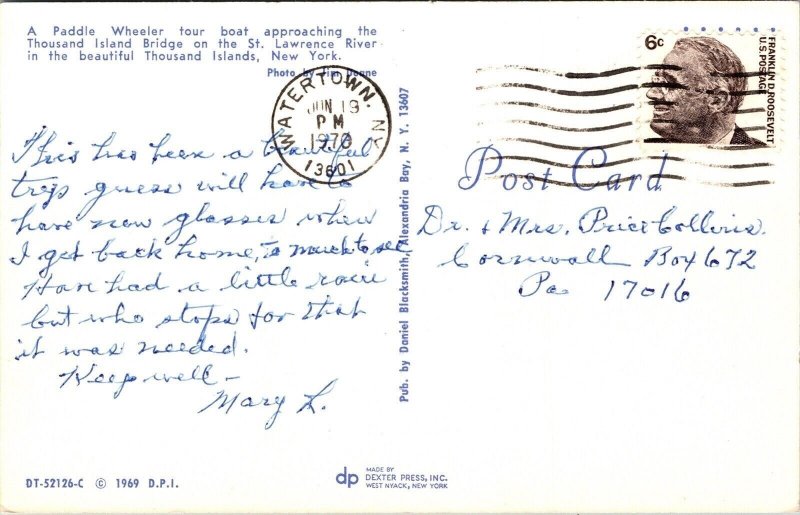 A Paddle Wheeler tour boat approaching the
Thousand Island Bridge on the St. Lawrence River
in the beautiful Thousand Islands, New York.
Photo by Jim Doane
WATERTOWN, NY
JUN 19
PM
1970
13601
6c
FRANKLIN D. ROOSEVELT
U.S. POSTAGE
Post Card
This has been a beautiful
trip guess will have to
have new glasses when
I get back home, to much to see
Have had a little rain
but who stops for that
it was needed.
Keep well –
Mary L.
Pub. by Daniel Blacksmith, Alexandria Bay, N. Y. 13607
Dr. & Mrs. Price Collins.
Cornwall Box 672
Pa 17016
DT-52126-C © 1969 D.P.I.
dp
MADE BY
DEXTER PRESS, INC.
WEST NYACK, NEW YORK